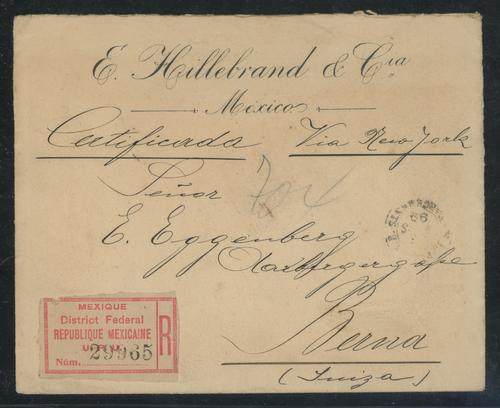 E. Hillebrand & Cia
México
Certificada Via New York
Señor
704
E. Eggenberg
Aarbergergasse
Berna
(Suiza)
MEXIQUE
District Federal
REPUBLIQUE MEXICAINE
R
Núm. 29965